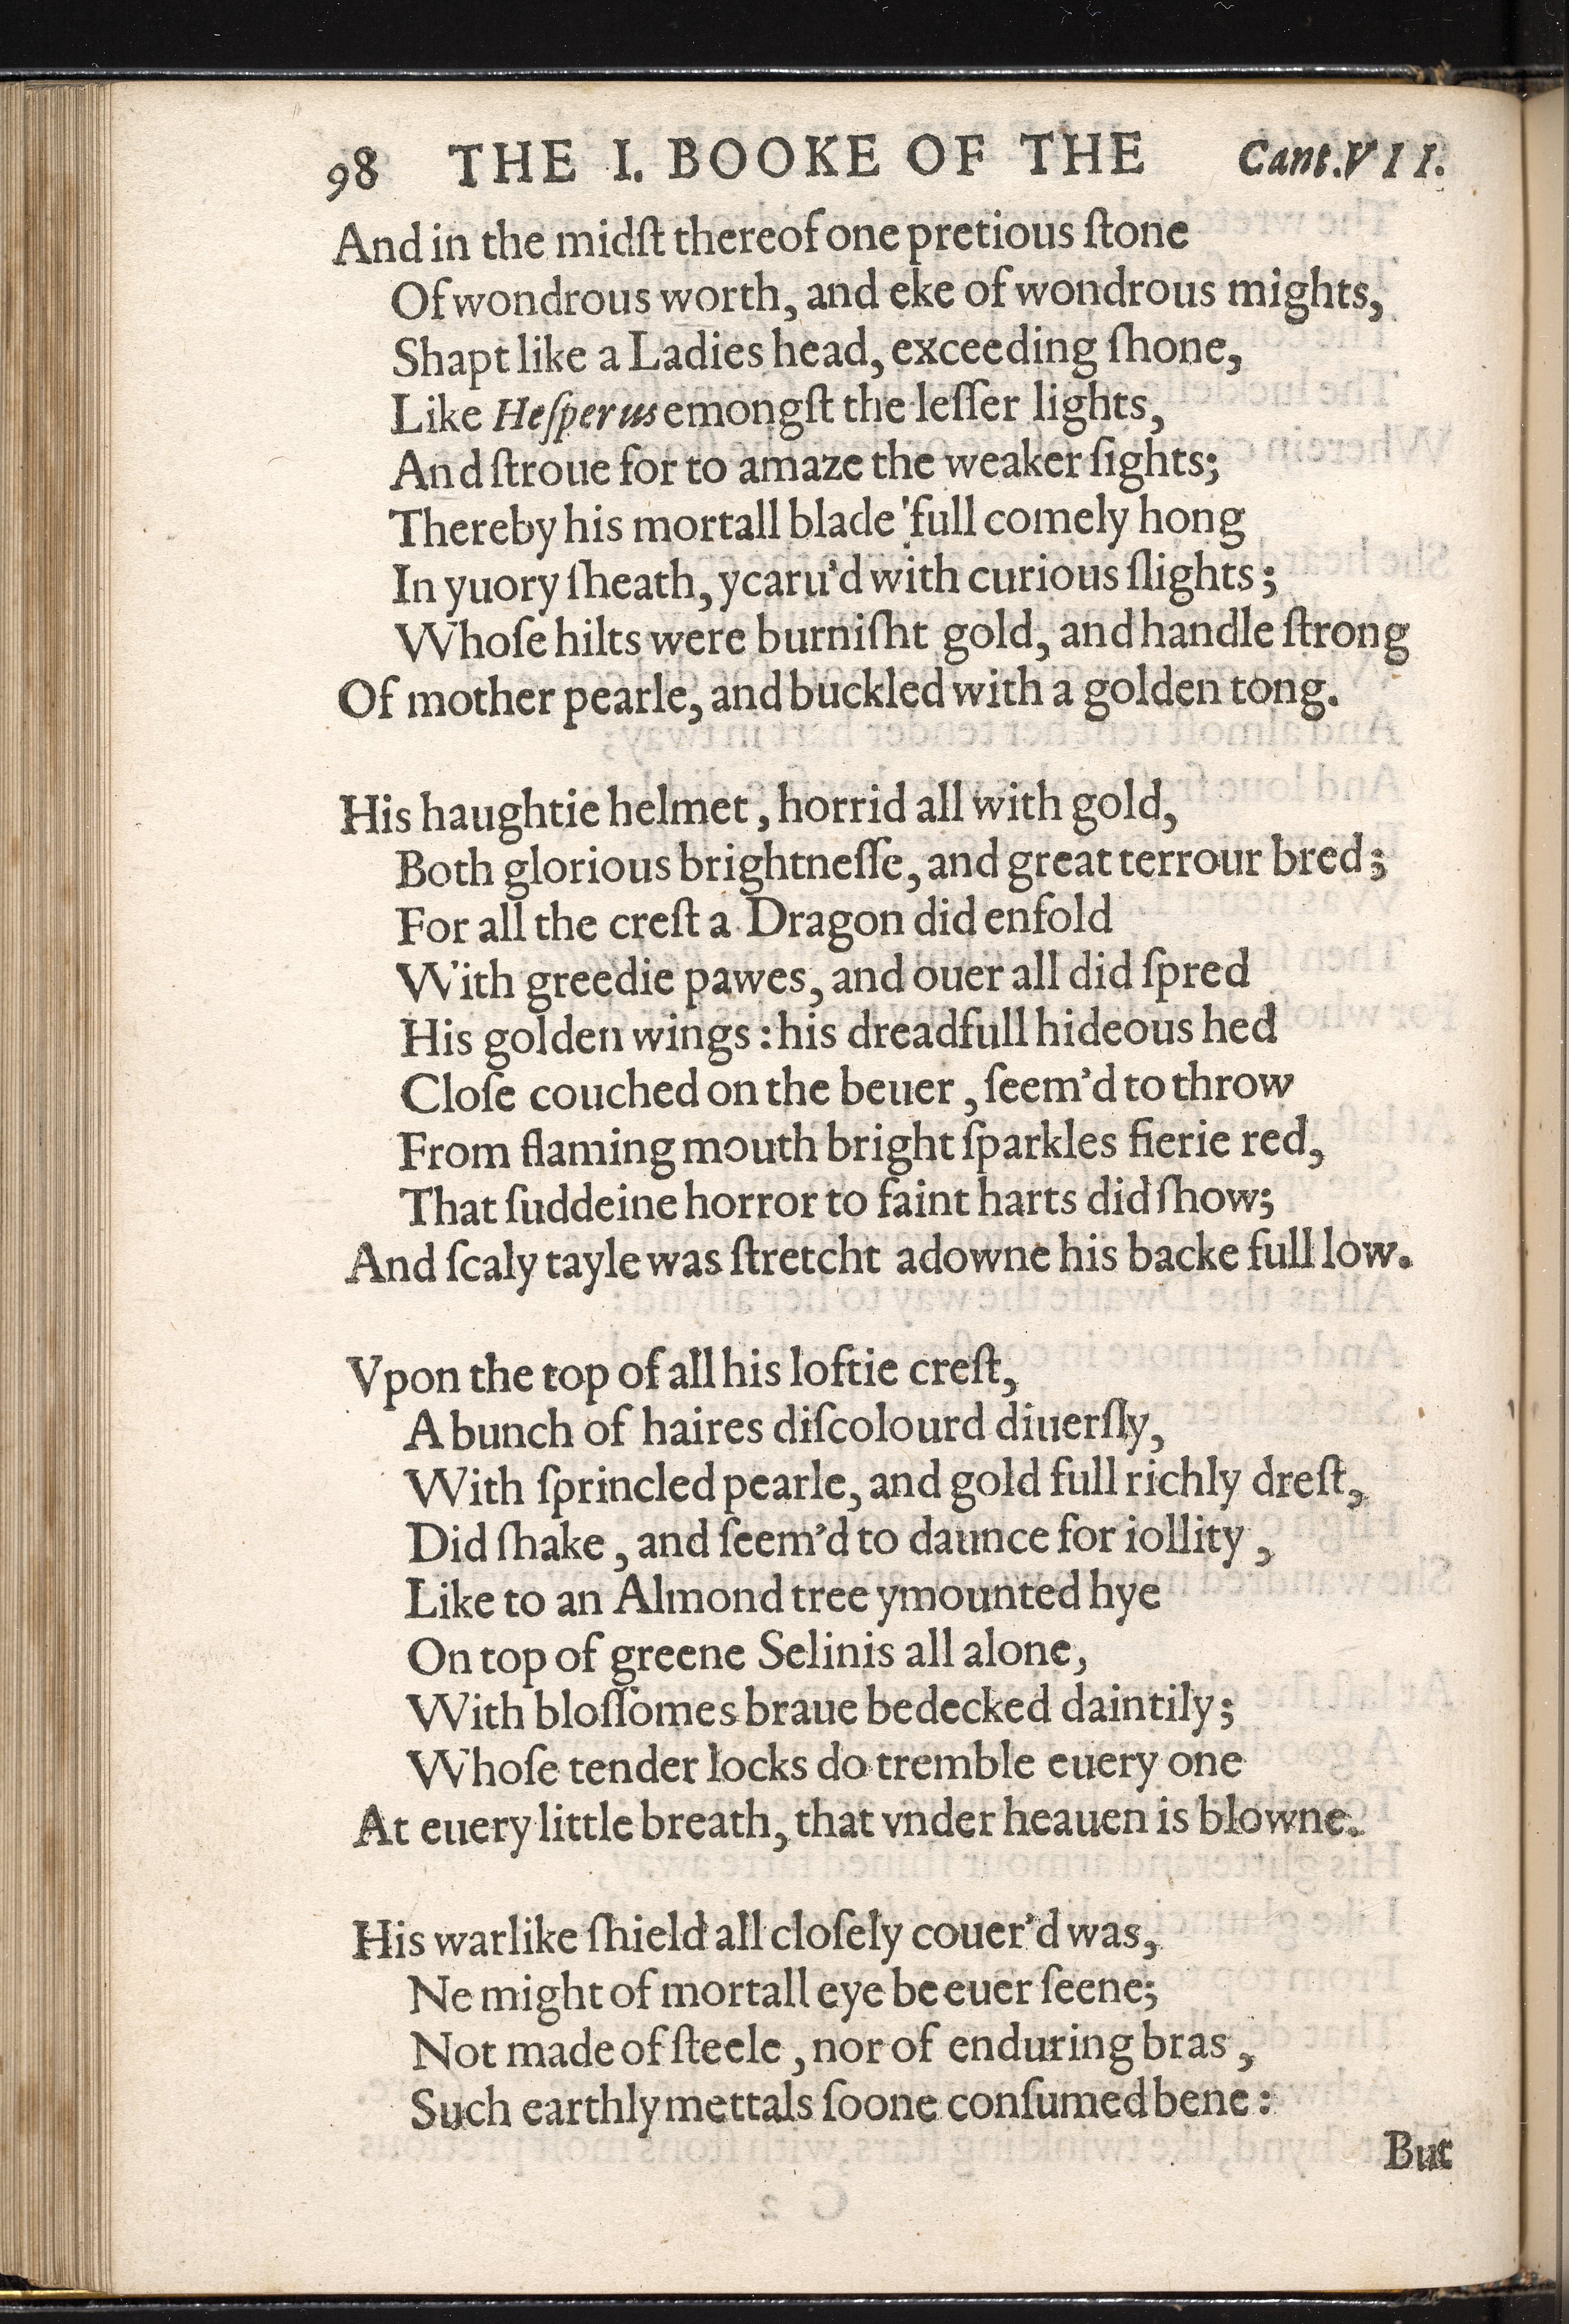 98 THE I. BOOKE OF THE Cant.VII.
And in the midſt thereof one pretious ſtone
Of wondrous worth, and eke of wondrous mights,
Shapt like a Ladies head, exceeding ſhone,
Like Heſperus emongſt the leſſer lights,
And ſtroue for to amaze the weaker ſights;
Thereby his mortall blade full comely hong
In yuory ſheath, ycaru'd with curious ſlights;
Whoſe hilts were burniſht gold, and handle ſtrong
Of mother pearle, and buckled with a golden tong.
His haughtie helmet, horrid all with gold,
Both glorious brightneſſe, and great terrour bred;
For all the creſt a Dragon did enfold
With greedie pawes, and ouer all did ſpred
His golden wings: his dreadfull hideous hed
Cloſe couched on the beuer, ſeem'd to throw
From flaming mouth bright ſparkles fierie red,
That ſuddeine horror to faint harts did ſhow;
And ſcaly tayle was ſtretcht adowne his backe full low.
Vpon the top of all his loftie creſt,
A bunch of haires diſcolourd diuerſly,
With ſprincled pearle, and gold full richly dreſt,
Did ſhake, and ſeem'd to daunce for iollity,
Like to an Almond tree ymounted hye
On top of greene Selinis all alone,
With bloſſomes braue bedecked daintily;
Whoſe tender locks do tremble euery one
At euery little breath, that vnder heauen is blowne.
His warlike ſhield all cloſely couer'd was,
Ne might of mortall eye be euer ſeene;
Not made of ſteele, nor of enduring bras,
Such earthly mettals ſoone conſumed bene:
But